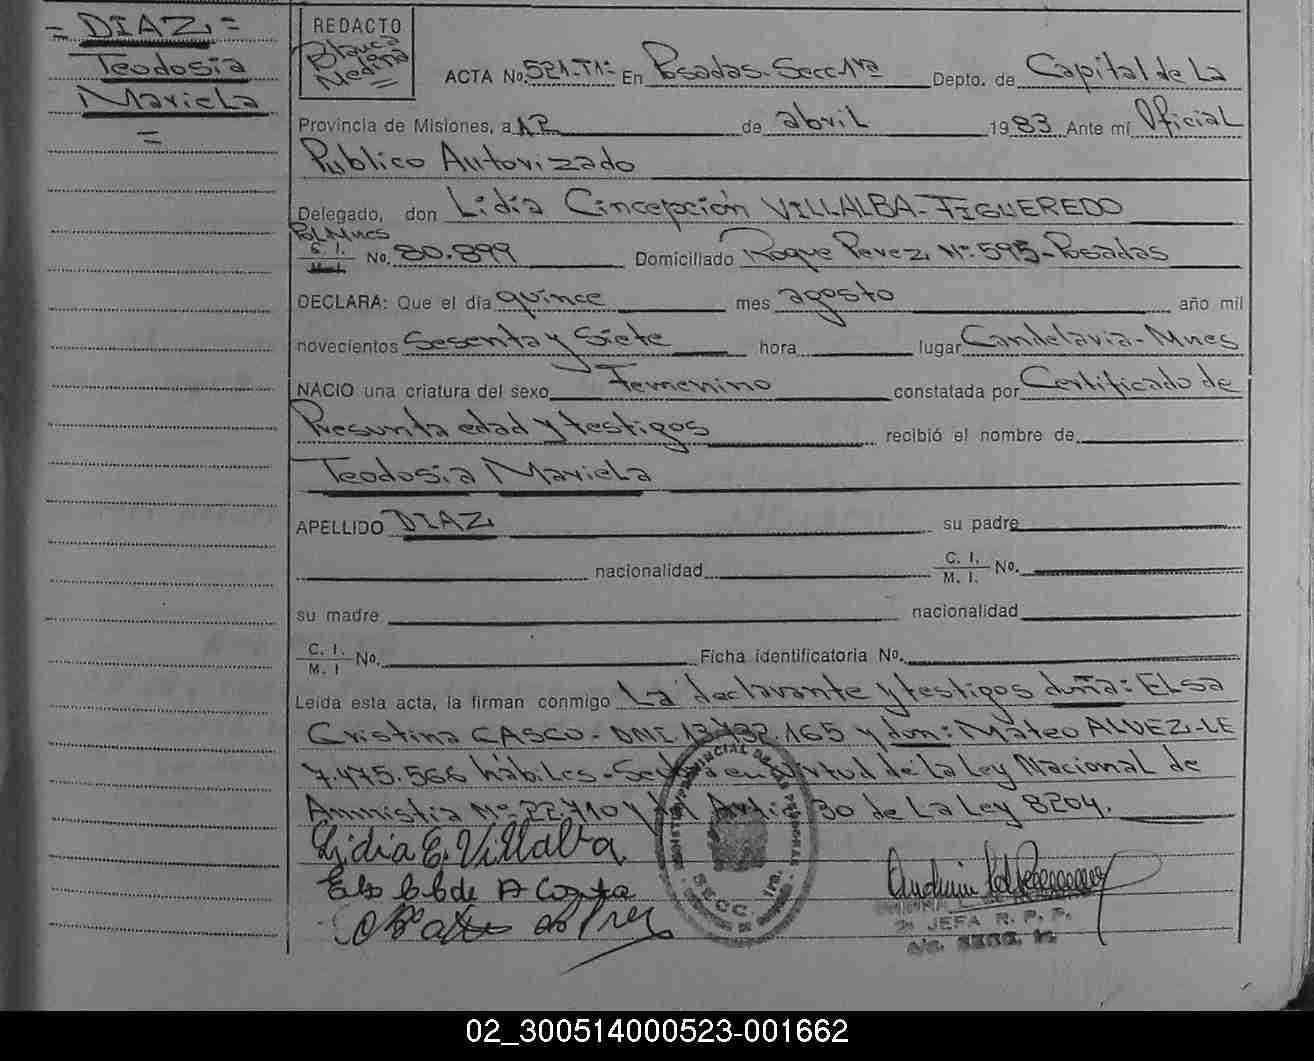 = DIAZ =
Teodosia
Mariela
=
REDACTO
Blanca
de
Medina
ACTA No. 521-T1º En Posadas-Secc 1ra Depto. de Capital de La
Provincia de Misiones, a 12 de abril 1983 Ante mí Oficial
Público Autorizado
Delegado, don Lidia Cincepción VILLALBA-FIGUEREDO
Pol. Mnes
C. I.
M. I. No. 80.899 Domiciliado Roque Perez Nº 595-Posadas
DECLARA: Que el día quince mes agosto año mil
novecientos Sesenta y Siete hora lugar Candelaria-Mnes
NACIO una criatura del sexo Femenino constatada por Certificado de
Presunta edad y testigos recibió el nombre de
Teodosia Mariela
APELLIDO DIAZ su padre
nacionalidad C. I.
M. I. No.
su madre nacionalidad
C. I.
M. I No. Ficha identificatoria No.
Leída esta acta, la firman conmigo La declarante y testigos doña: Elsa
Cristina CASCO-DNI.13.732.165 y don: Mateo ALVEZ-LE
7.475.566 hábiles-Se en virtud de La Ley Nacional de
Amnistía Nº 22.710 y Artic 30 de La Ley 8204.
Lidia C. Villalba
SECC. 1ra.
2º JEFA R. P. P.
A/C. SECC. 1a.
02_300514000523-001662